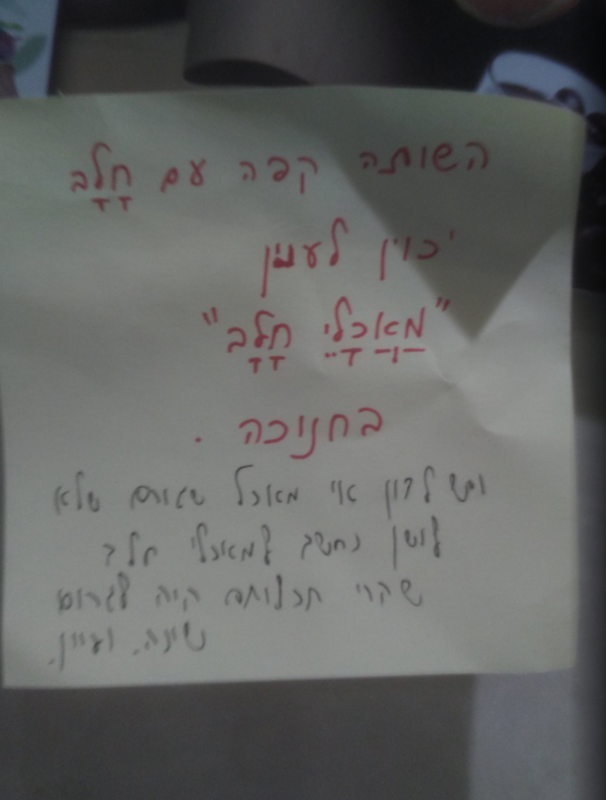 השותה קפה עם חָלָב
יכוין לענין
"מַאֲכָלֵי חָלָב"
בחנוכה .
ויש לדון אי מאכל שגורם שלא
לישן נחשב למאכלי חלב
שהרי תכליתם היה לגרום
שינה. ועיין.